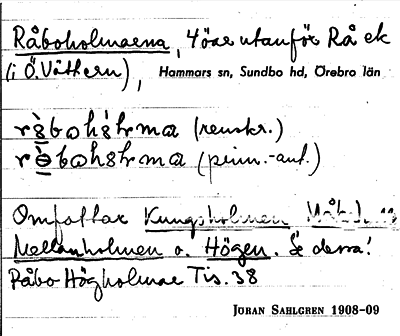 Råboholmarna, 4 öar utanför Rå ek
(i Ö. Vättern),
Hammars sn, Sundbo hd, Örebro län
(renskr.)
(prim.-ant.)
Omfattar Kungsholmen
Mellanholmen o. Högen. Se dessa!
Råbo Högholmar Tis. 38
JÖRAN SAHLGREN 1908-09